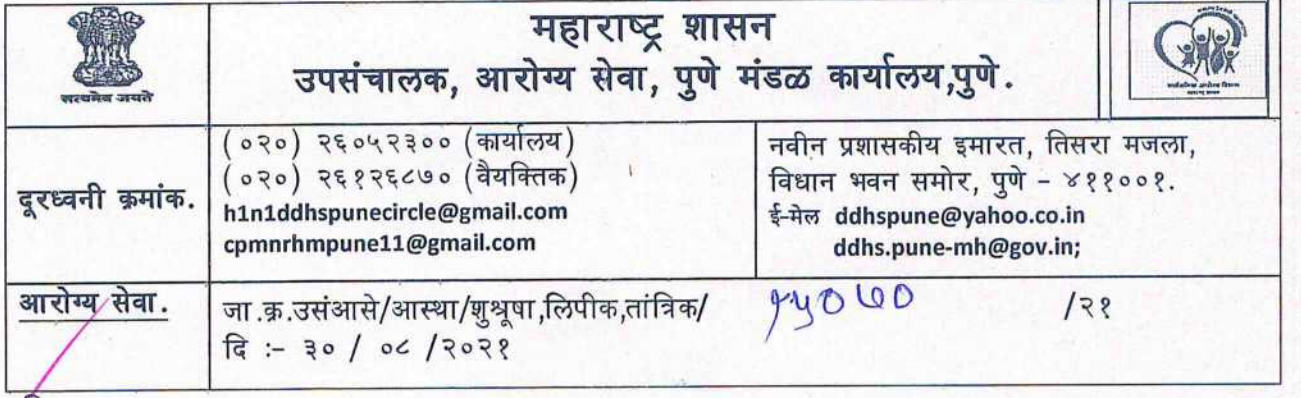 महाराष्ट्र शासन
उपसंचालक, आरोग्य सेवा, पुणे मंडळ कार्यालय,पुणे.
सत्यमेव जयते
दूरध्वनी क्रमांक.
(०२०) २६०५२३०० (कार्यालय)
(०२०) २६१२६८७० (वैयक्तिक)
h1n1ddhspunecircle@gmail.com
cpmnrhmpune11@gmail.com
नवीन प्रशासकीय इमारत, तिसरा मजला,
विधान भवन समोर, पुणे - ४११००१.
ई-मेल ddhspune@yahoo.co.in
ddhs.pune-mh@gov.in;
आरोग्य सेवा.
जा.क्र.उसंआसे/आस्था/शुश्रूषा,लिपीक,तांत्रिक/ १५०७० /२१
दि :- ३० / ०८ /२०२१